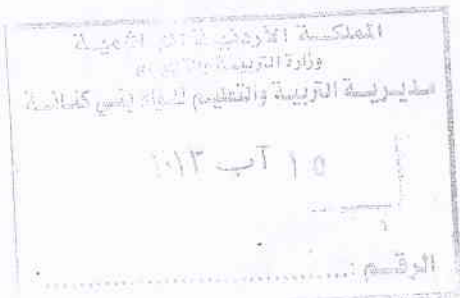 المملكة الأردنية الهاشمية
وزارة التربية والتعليم
مديرية التربية والتعليم للواء بني كنانة
١٥ آب ٢٠١٣
الرقم :..............................